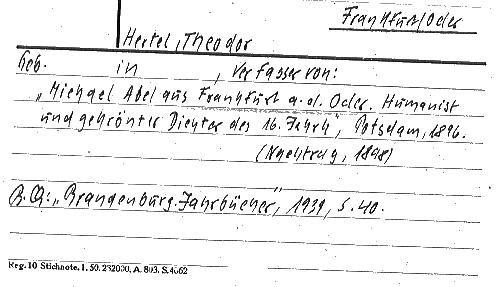 Frankfurt/Oder
Hertel, Theodor
geb. in , Verfasser von:
„Michael Abel aus Frankfurt a.d. Oder. Humanist
und gekrönter Dichter des 16. Jahrh", Potsdam, 1896.
(Nachtrag, 1898)
B.Q: „Brandenburg. Jahrbücher", 1939, S. 40.
Reg. 10 Stichnote. I. 50. 232000. A. 803. S. 4662